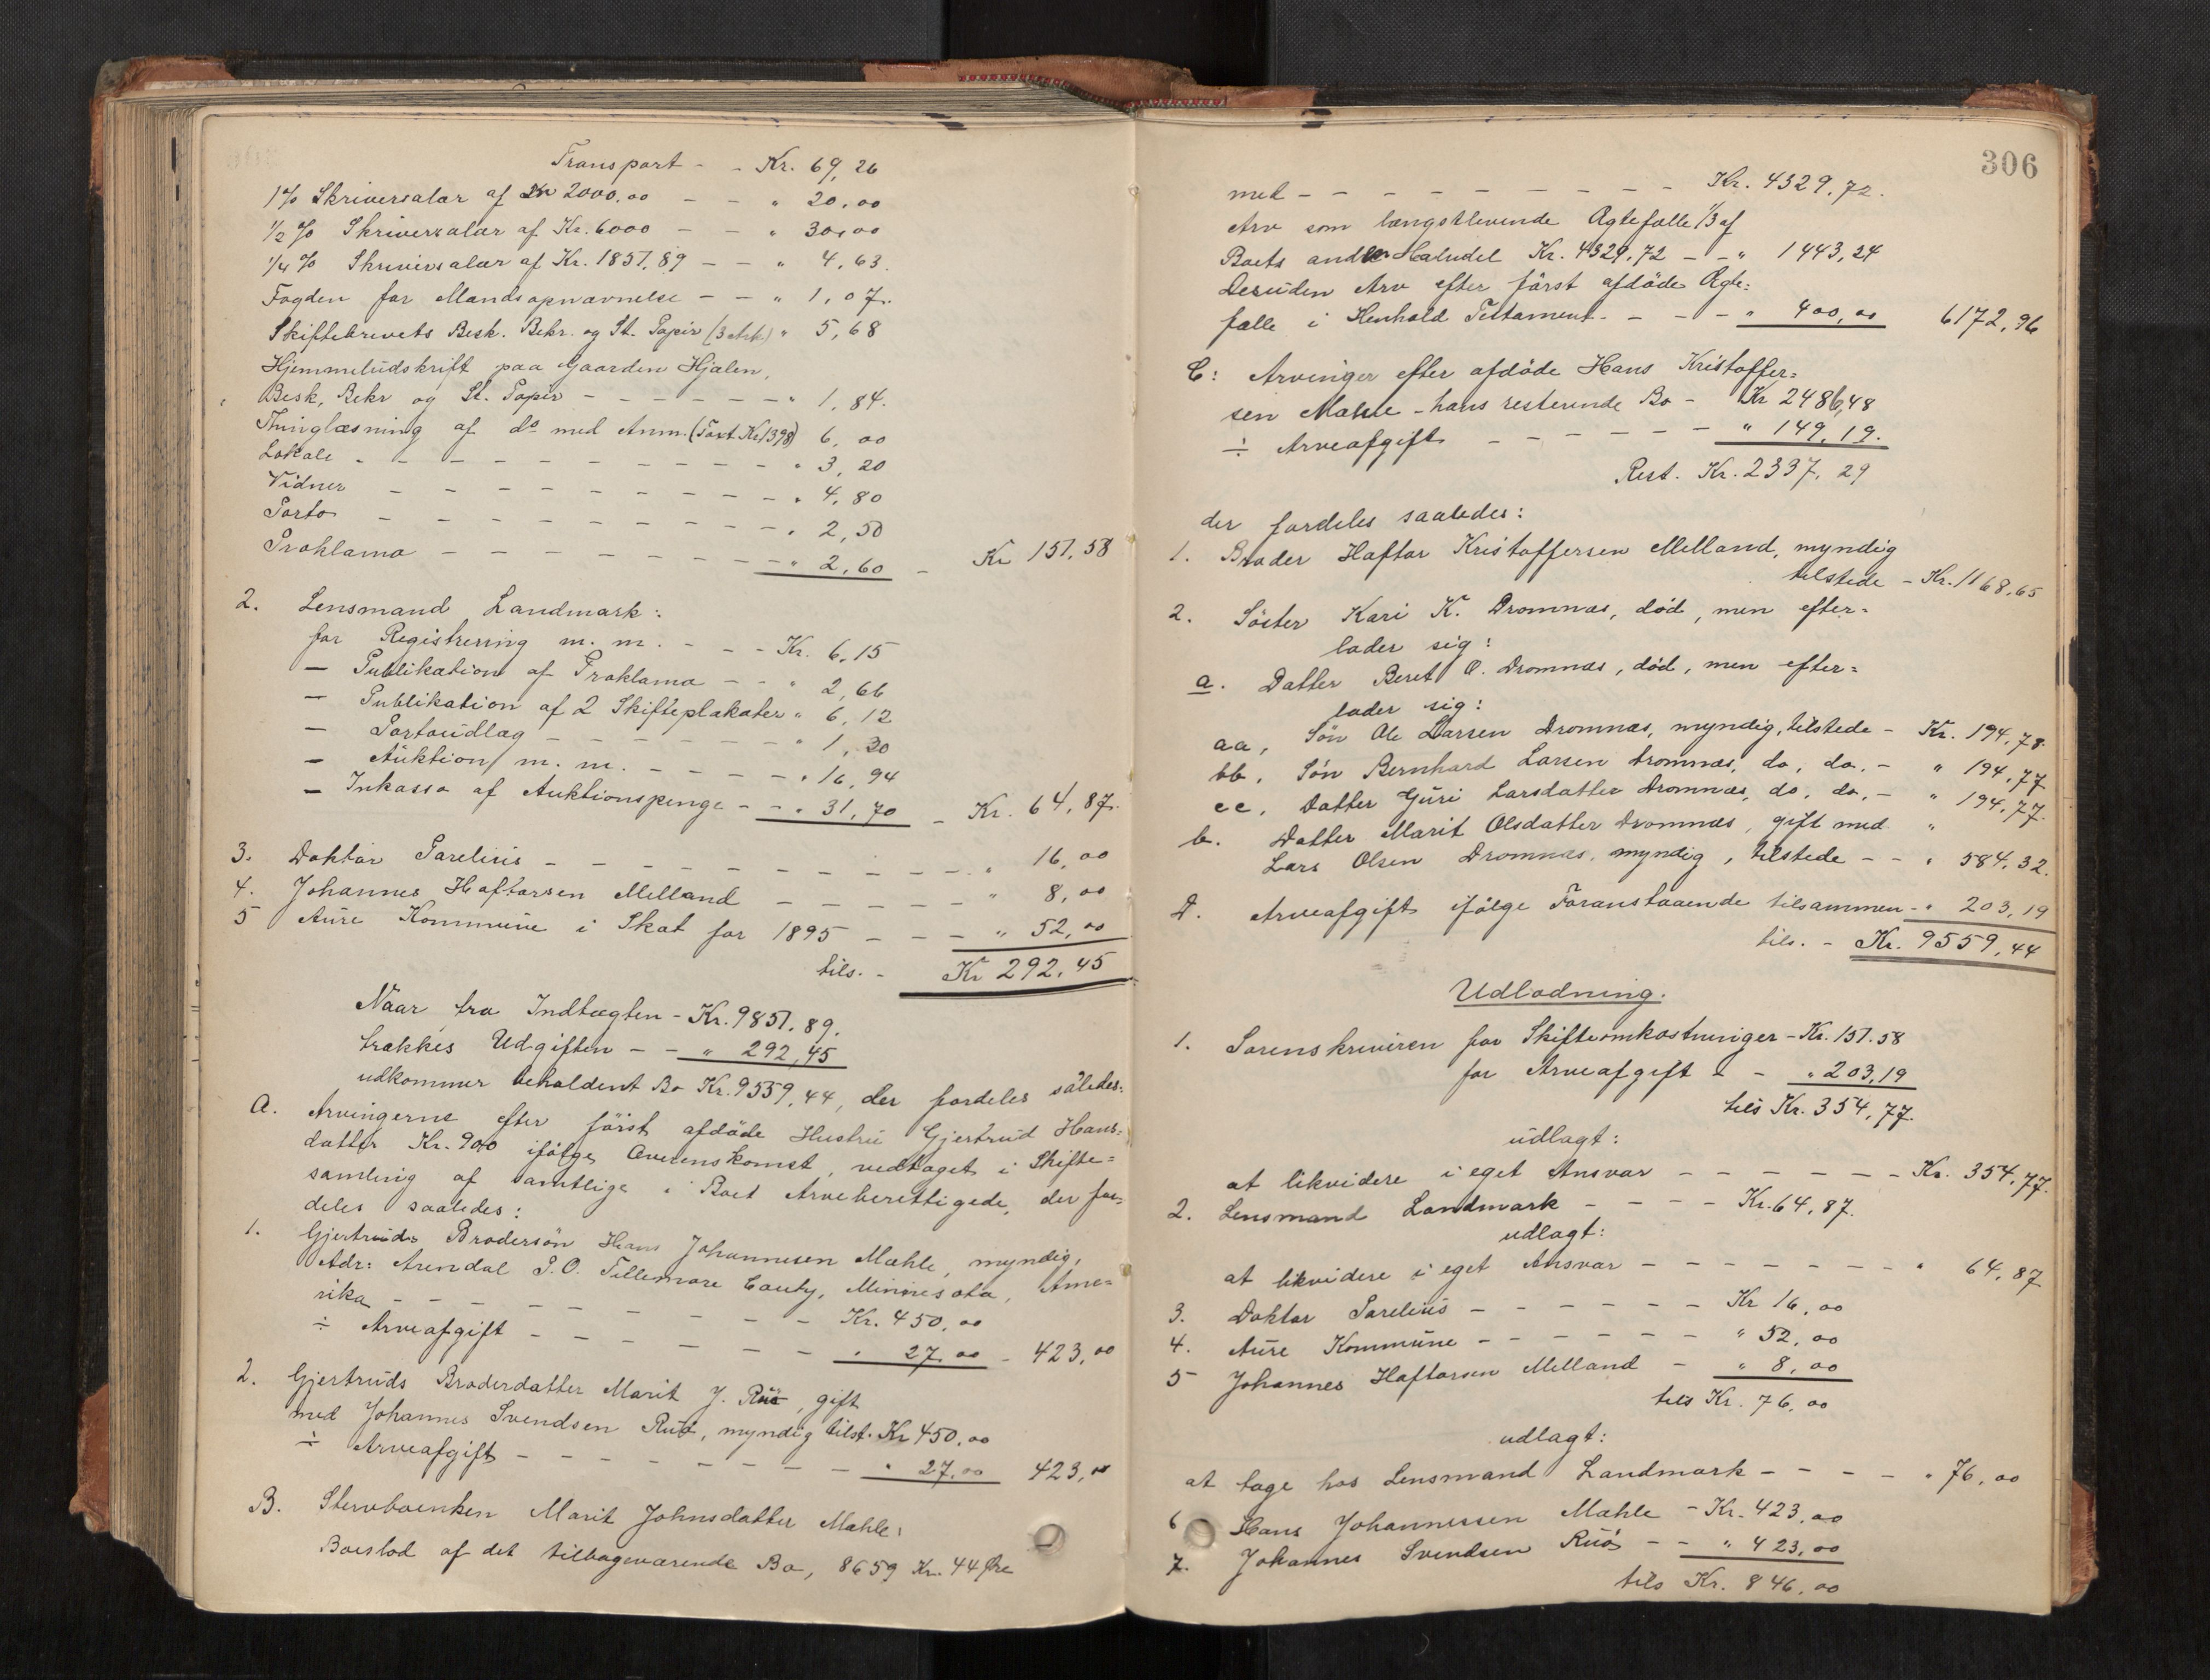 Transport - - Kr. 69,26
1% Skriversalær af Kr 2000.00 - - " 20.00
1/2 % Skriversalær af Kr. 6000 - - " 30.00
1/4 % Skriversalær af Kr. 1851.89 - - " 4,63.
Fogden for Mandsopnævnelse - - " 1,07.
Skiftebrevets Besk. Bekr. og St. Papir (3 Ark) " 5,68
Hjemmelsudskrift paa Gaarden Hjælen,
Besk, Bekr og St. Papir - - - - - - - " 1,84.
Thinglæsning af do med Anm. (Taxt Kr 1398) 6,00
Lokale - - - - - - - - - - " 3,20
Vidner - - - - - - - - - - " 4,80
Porto - - - - - - - - - - " 2,50
Proklama - - - - - - - - - " 2,60 - Kr 151,58
2. Lensmand Landmark:
for Registrering m. m. - - - Kr. 6,15
— Publikation af Proklama - - " 2,66
— Publikation af 2 Skifteplakater " 6,12
— Portoudlæg - - - - - - - " 1,30
— Auktion m. m. - - - - - " 16,94
— Inkasso af Auktionspenge - - " 31,70 - Kr. 64,87.
3. Doktor Parelius - - - - - - - - - - " 16,00
4. Johannes Haftorsen Melland - - - - - - " 8,00
5 Aure Kommune i Skat for 1895 - - - " 52,00
tils. - Kr 292,45
Naar fra Indtægten - Kr. 9851.89.
trækkes Udgiften - - " 292,45
udkommer beholdent Bo Kr. 9559,44, der fordeles således:
A. Arvingerne efter först afdöde Hustru Gjertrud Hans=
datter Kr. 900 ifölge Overenskomst, vedtaget i Skifte=
samling af samtlige i Boet Arveberettigede, der for=
deles saaledes:
1. Gjertruds Brodersön Hans Johannesen Mæhle, myndig,
Adr: Arendal P.O. Tillemore Couty, Minnisota, Ame=
rika - - - - - - - - Kr. 450,00
÷ Arveafgift - - - - - - " 27.00 - 423,00
2. Gjertruds Broderdatter Marit J. Ruö, gift
med Johannes Svendsen Ruö, myndig tilst. Kr 450,00
÷ Arveafgift - - - - - - - - " 27,00 423,00
B. Stervboenken Marit Johnsdatter Mæhle:
Boeslod af det tilbageværende Bo, 8659 Kr. 44 Øre
306
med - - - - - - - - - Kr. 4329,72.
Arv som længstlevende Ægtefælle 1/3 af
Boets anden Halvdel Kr. 4329,72 - - " 1443,24
Desuden Arv efter först afdöde Ægte=
fælle i Henhold Testament - - - - " 400,00 6172,96
C: Arvinger efter afdöde Hans Kristoffer=
sen Mæhle - hans resterende Bo - Kr 2486,48
÷ Arveafgift - - - - - - - " 149.19.
Rest. Kr. 2337,29
der fordeles saaledes:
1. Broder Haftor Kristoffersen Melland, myndig
tilstede - Kr. 1168,65
2. Söster Kari K. Dromnæs, död, men efter=
lader sig:
a. Datter Beret O. Dromnæs, död, men efter=
lader sig:
aa, Søn Ole Larsen Dromnæs, myndig, tilstede - Kr. 194,78.
bb, Søn Bernhard Larsen Dromnæs, do, do. - " 194,77
cc, Datter Guri Larsdatter Dromnæs, do, do, - " 194,77.
b. Datter Marit Olsdatter Dromnæs, gift med "
Lars Olsen Dromnæs, myndig, tilstede - - " 584,32.
D. Arveafgift ifölge Foranstaaende tilsammen - " 203,19
tils. - Kr. 9559,44
Udlodning.
1. Sorenskriveren for Skifteomkostninger - Kr. 151.58
for Arveafgift - - " 203,19
tils Kr. 354,77.
udlagt:
at likvidere i eget Ansvar - - - - - - - Kr. 354,77.
2. Lensmand Landmark - - - - Kr. 64,87.
udlagt:
at likvidere i eget Ansvar - - - - - - - - " 64,87
3. Doktor Parelius - - - - - - Kr 16,00
4. Aure Kommune - - - - - - " 52,00
5 Johannes Haftorsen Melland - " 8,00
tils Kr. 76,00
udlagt:
at tage hos Lensmand Landmark - - - - " 76,00
6 Hans Johannessen Mæhle - Kr. 423.00
7. Johannes Svendsen Ruö - - " 423,00
tils Kr. 846,00